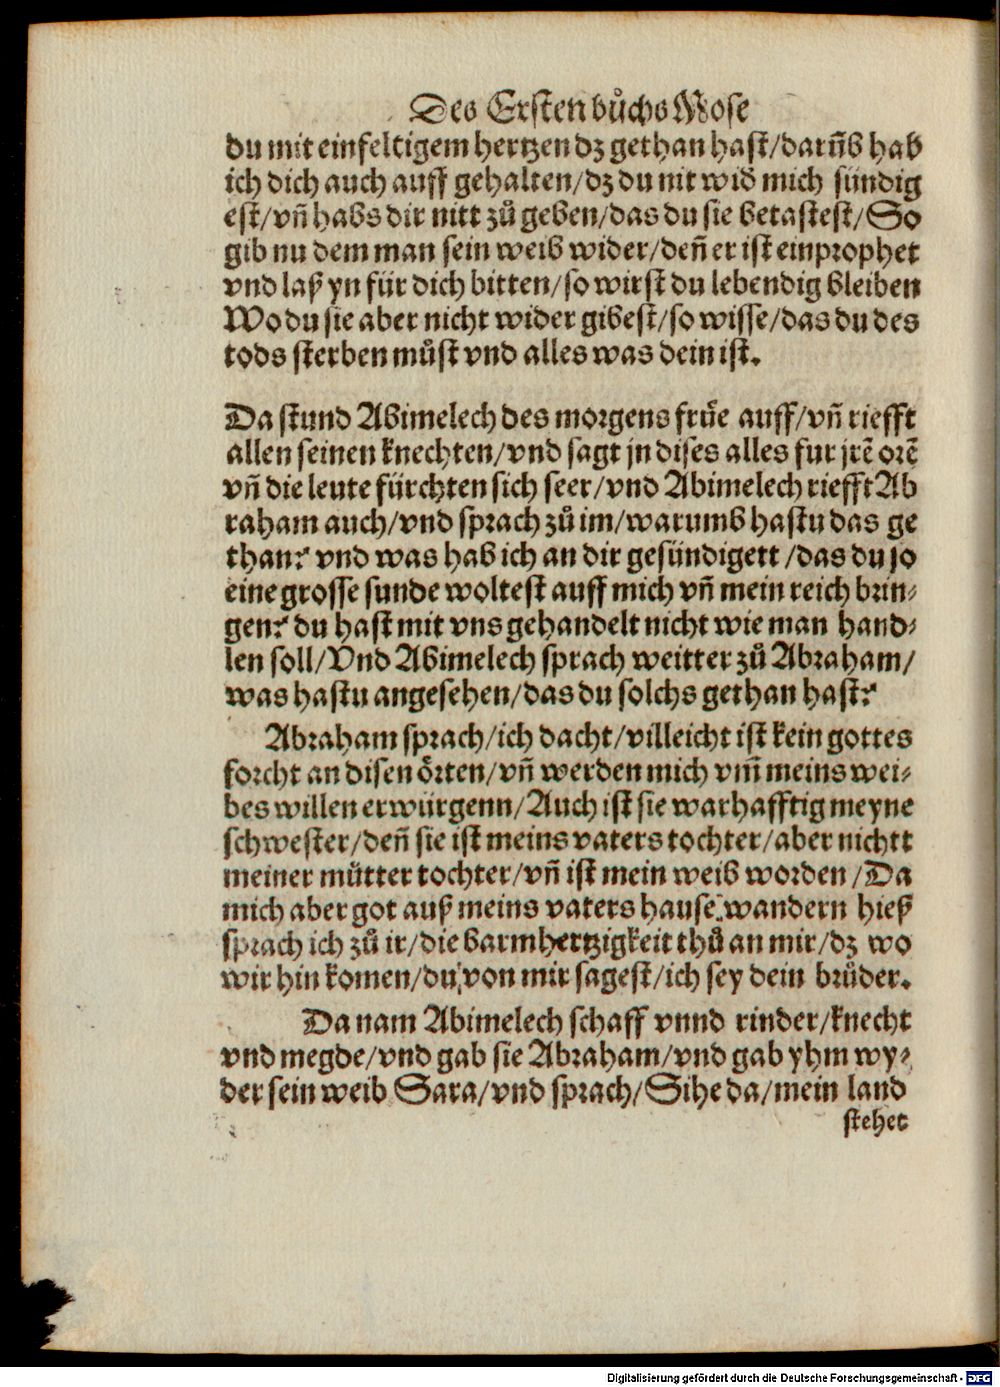 Des Ersten bůchs Mose
du mit einfeltigem hertzen dz gethan hast/darũb hab
ich dich auch auff gehalten/dz du nit wid̕ mich sündig
est/vñ habs dir nitt zů geben/das du sie betastest/So
gib nu dem man sein weib wider/deñ er ist ein prophet
vnd laß yn für dich bitten/so wirst du lebendig bleiben
Wo du sie aber nicht wider gibest/so wisse/das du des
tods sterben můst vnd alles was dein ist.
Da stund Abimelech des morgens frůe auff/vñ riefft
allen seinen knechten/vnd sagt jn dises alles fur jrẽ orẽ
vñ die leute fürchten sich seer/vnd Abimelech riefft Ab
raham auch/vnd sprach zů im/warumb hastu das ge
than? vnd was hab ich an dir gesündigett/das du jo
eine grosse sunde woltest auff mich vñ mein reich brin⸗
gen? du hast mit vns gehandelt nicht wie man hand⸗
len soll/Vnd Abimelech sprach weitter zů Abraham/
was hastu angesehen/das du solchs gethan hast?
Abraham sprach/ich dacht/villeicht ist kein gottes
forcht an disen örten/vñ werden mich vm̃ meins wei⸗
bes willen erwürgenn/Auch ist sie warhafftig meyne
schwester/deñ sie ist meins vaters tochter/aber nichtt
meiner můtter tochter/vñ ist mein weib worden/Da
mich aber got auß meins vaters hause wandern hieß
sprach ich zů ir/die barmhertzigkeit thů an mir/dz wo
wir hin komen/du von mir sagest/ich sey dein brůder.
Da nam Abimelech schaff vnnd rinder/knecht
vnd megde/vnd gab sie Abraham/vnd gab yhm wy⸗
der sein weib Sara/vnd sprach/Sihe da/mein land
stehet
Digitalisierung gefördert durch die Deutsche Forschungsgemeinschaft - DFG